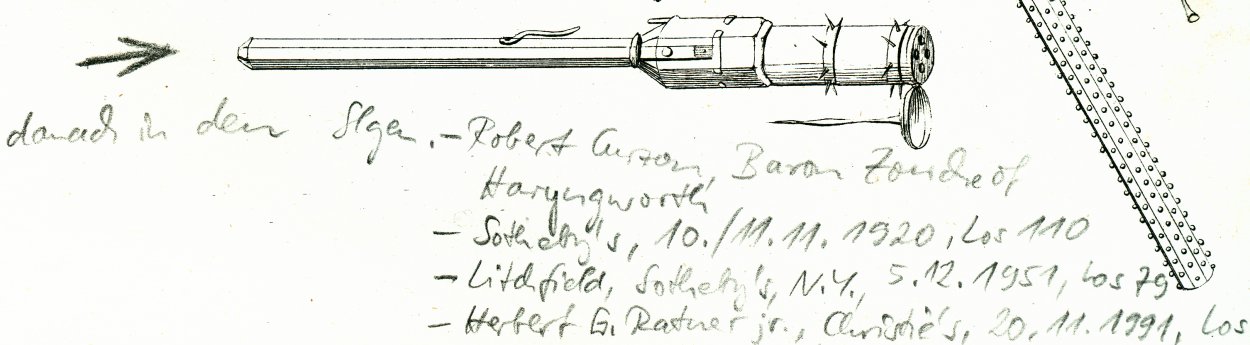 danach in den Slgen. – Robert Curzon, Baron Zouche of
Haryngworth
– Sotheby's, 10./11.11.1920, Los 110
– Litchfield, Sotheby's, N.Y., 5.12.1951, Los 79
– Herbert G. Ratner jr., Christie's, 20.11.1991, Los